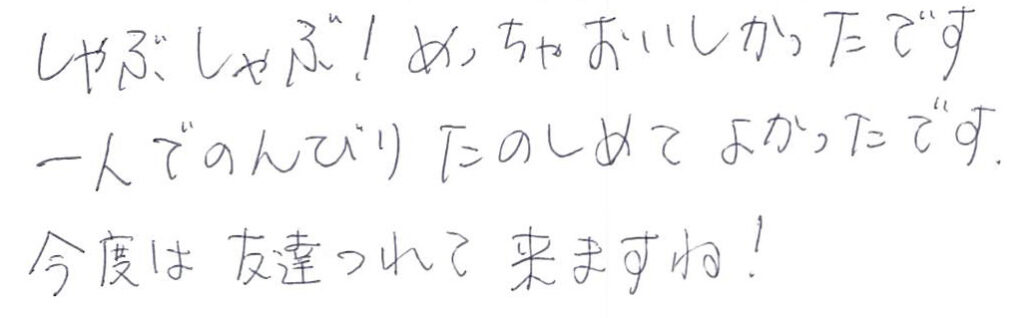 しゃぶしゃぶ！めっちゃおいしかったです
一人でのんびりたのしめてよかったです.
今度は友達つれて来ますね！